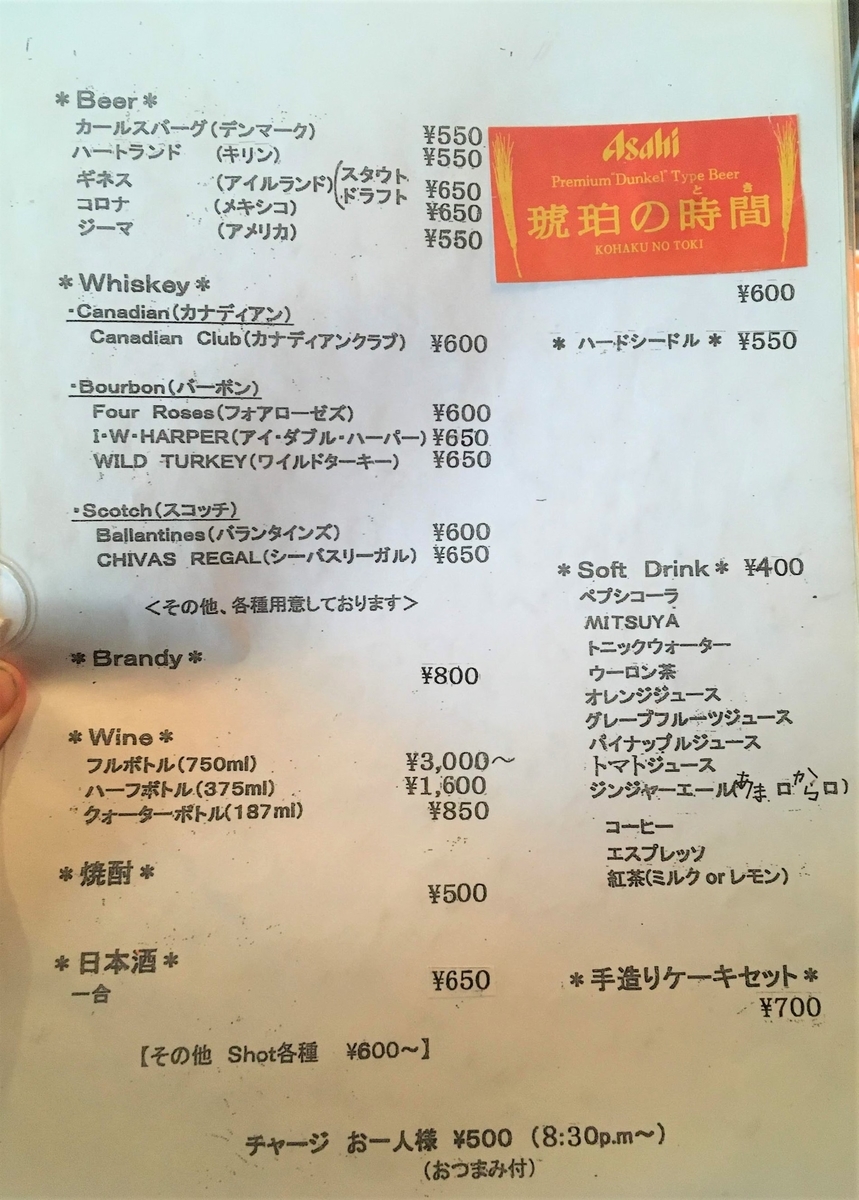 ＊Beer＊
カールスバーグ(デンマーク) ¥550
ハートランド (キリン) ¥550
ギネス (アイルランド)(スタウト ¥650
ドラフト
コロナ (メキシコ) ¥650
ジーマ (アメリカ) ¥550
＊Whiskey＊
・Canadian(カナディアン)
Canadian Club(カナディアンクラブ) ¥600
・Bourbon(バーボン)
Four Roses(フォアローゼズ) ¥600
I・W・HARPER(アイ・ダブル・ハーパー) ¥650
WILD TURKEY(ワイルドターキー) ¥650
・Scotch(スコッチ)
Ballantines(バランタインズ) ¥600
CHIVAS REGAL(シーバスリーガル) ¥650
＜その他、各種用意しております＞
＊Brandy＊
¥800
＊Wine＊
フルボトル(750ml) ¥3,000～
ハーフボトル(375ml) ¥1,600
クォーターボトル(187ml) ¥850
＊焼酎＊
¥500
＊日本酒＊
一合 ¥650
【その他 Shot各種 ¥600～】
Asahi
Premium"Dunkel"Type Beer
と き
琥珀の時間
KOHAKU NO TOKI
¥600
＊ ハードシードル ＊ ¥550
＊Soft Drink＊ ¥400
ペプシコーラ
MITSUYA
トニックウォーター
ウーロン茶
オレンジジュース
グレープフルーツジュース
パイナップルジュース
トマトジュース
ジンジャーエール(あま口 から口)
コーヒー
エスプレッソ
紅茶(ミルク or レモン)
＊手造りケーキセット＊
¥700
チャージ お一人様 ¥500 (8:30p.m～)
(おつまみ付)